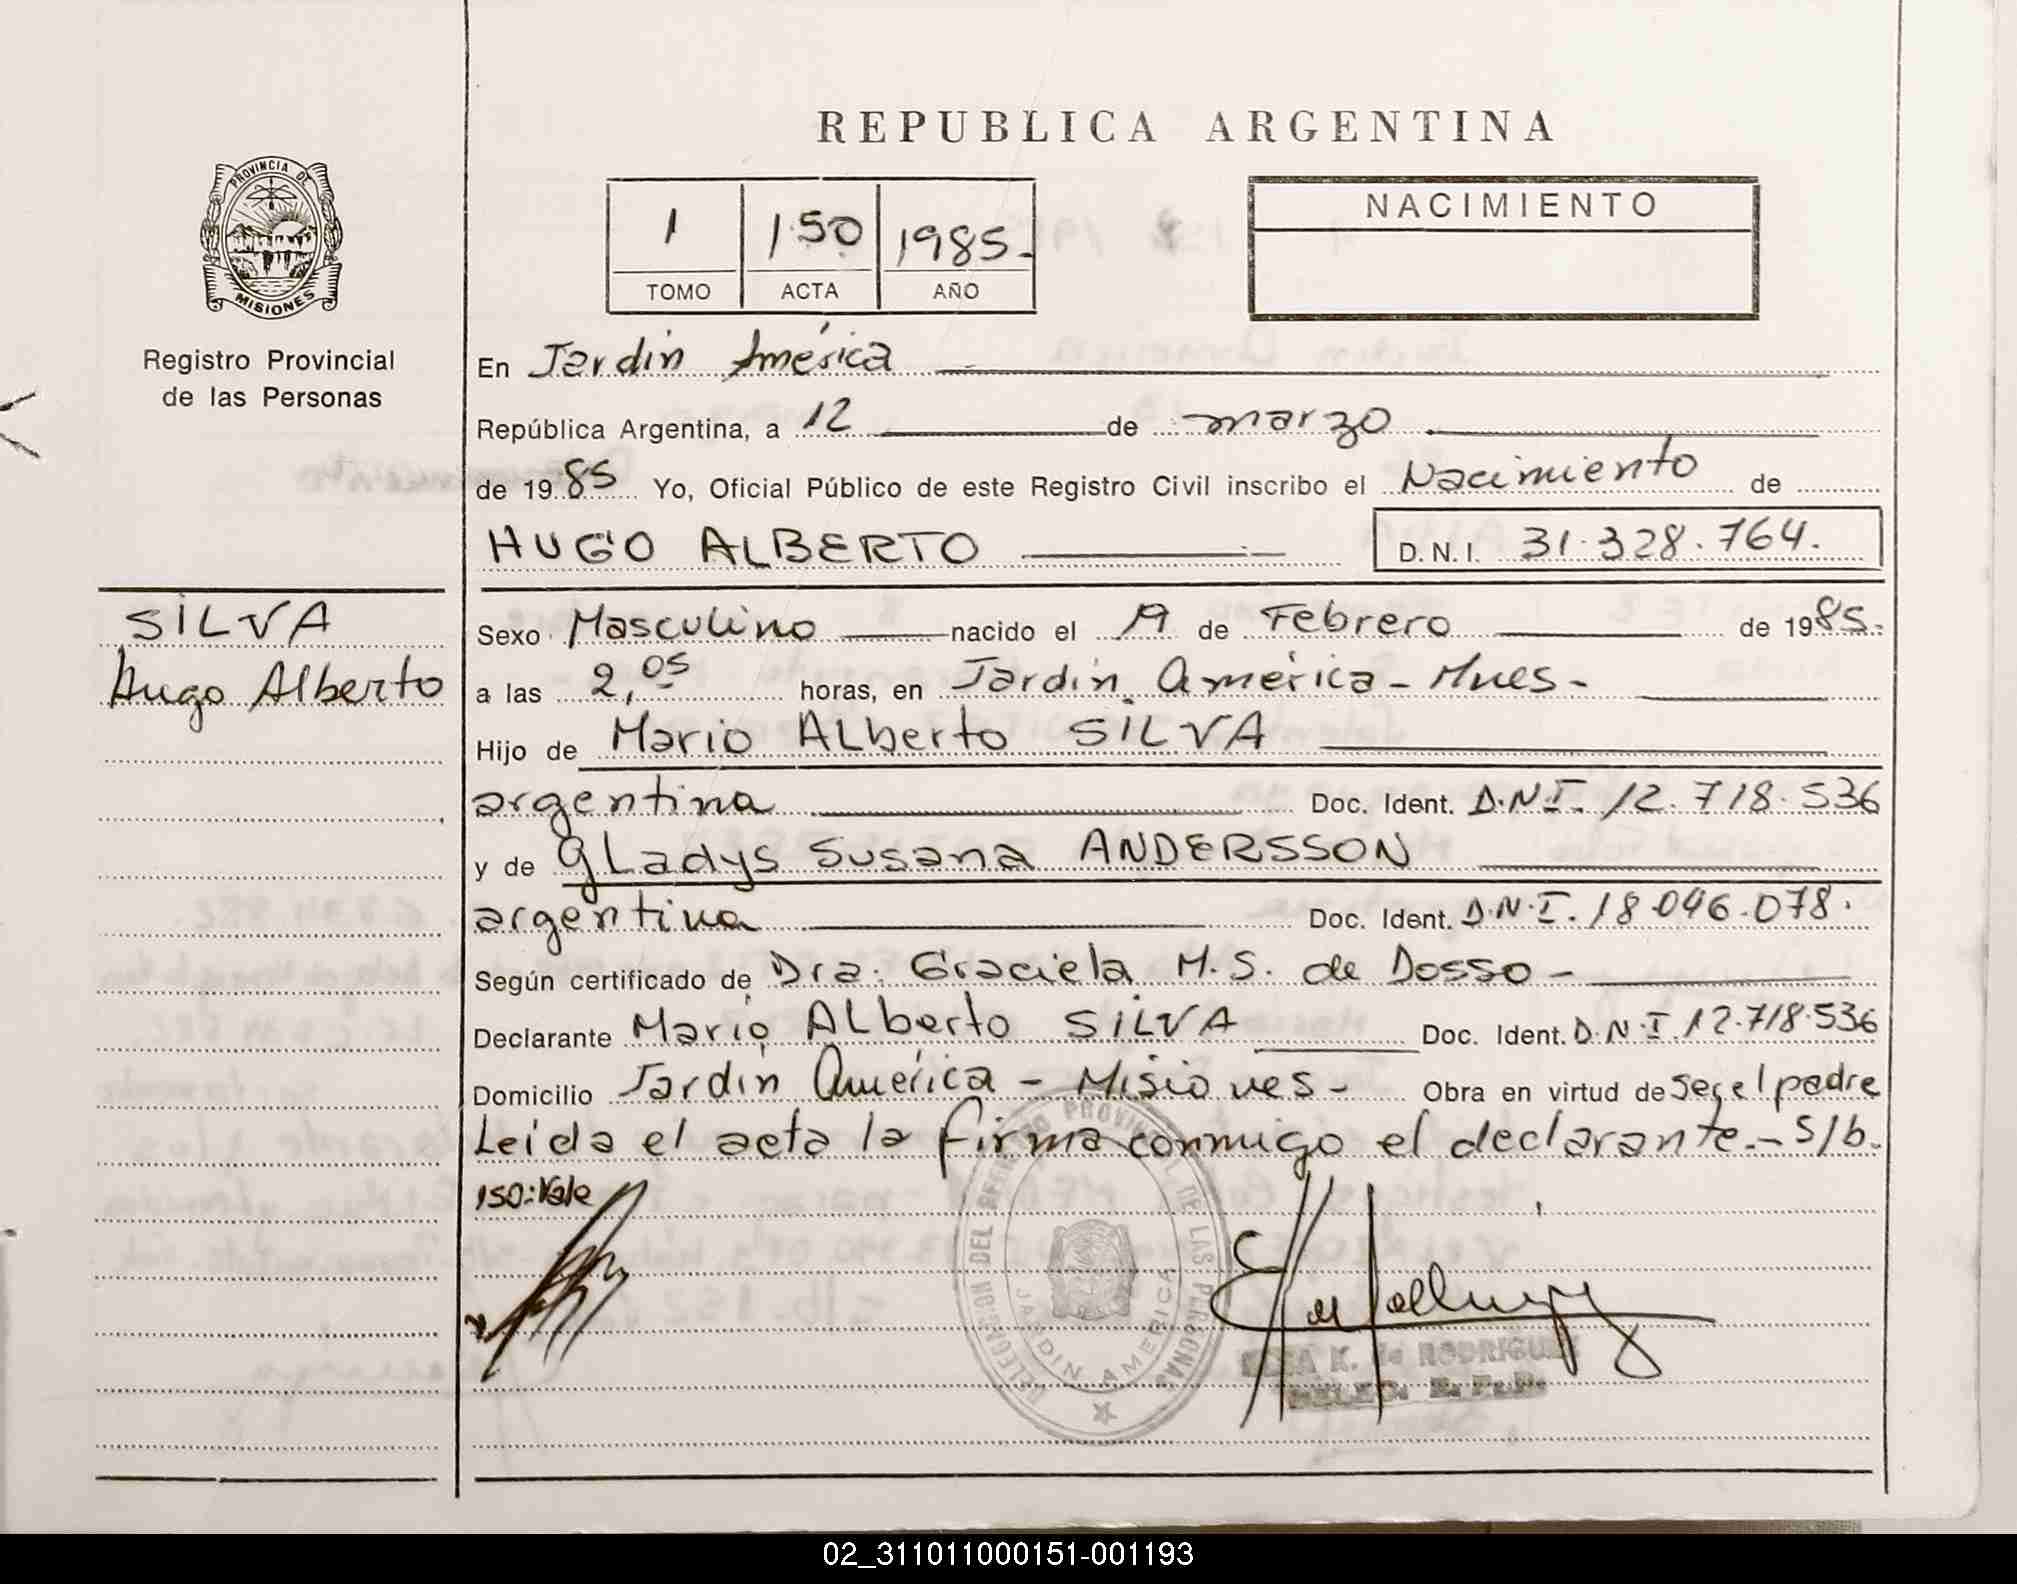 REPUBLICA ARGENTINA
PROVINCIA DE
MISIONES
Registro Provincial
de las Personas
1 150 1985.-
TOMO ACTA AÑO
NACIMIENTO
En Jardín América
República Argentina, a 12 de marzo
de 1985 Yo, Oficial Público de este Registro Civil inscribo el Nacimiento de
HUGO ALBERTO D.N.I. 31.328.764.
SILVA
Hugo Alberto
Sexo Masculino nacido el 19 de Febrero de 1985.-
a las 2,05 horas, en Jardín América - Mnes -
Hijo de Mario Alberto SILVA
argentina Doc. Ident. D.N.I. 12.718.536
y de Gladys Susana ANDERSSON
argentina Doc. Ident. D.N.I. 18.046.078.
Según certificado de Dra. Graciela M.S. de Dosso -
Declarante Mario Alberto SILVA Doc. Ident. D.N.I. 12.718.536
Domicilio Jardín América - Misiones - Obra en virtud de ser el padre
Leida el acta la firma conmigo el declarante.- S/b.
150: Vale
DELEGACION DEL REGISTRO PROVINCIAL DE LAS PERSONAS
JARDIN AMERICA
K. de RODRIGUEZ
02_311011000151-001193